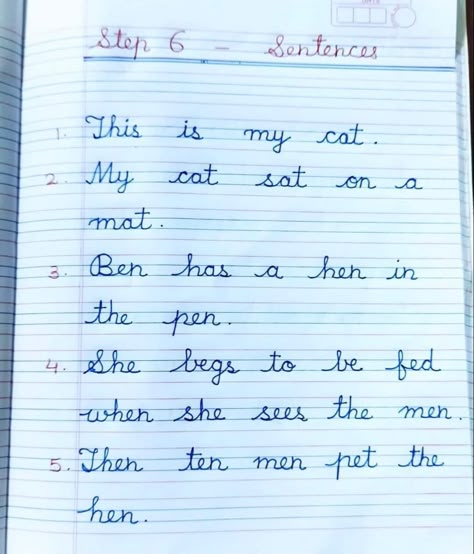 Step 6 - Sentences
1. This is my cat.
2. My cat sat on a
mat.
3. Ben has a hen in
the pen.
4. She begs to be fed
when she sees the men.
5. Then ten men pet the
hen.